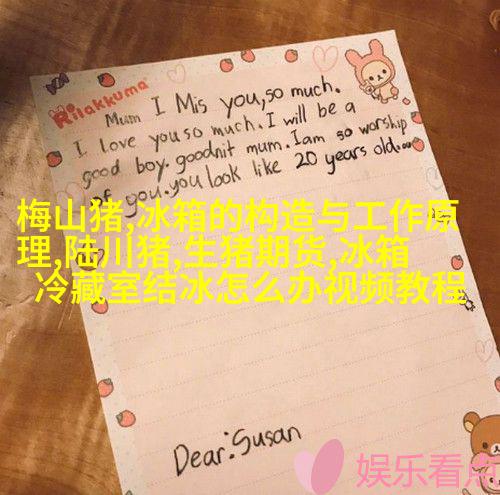 Rilakkuma
Mum I Mis you,so much.
I love you so much. I will be a
good boy. goodnit mum. Iam so worship
of you. you look like 20 years old.
梅山猪,冰箱的构造与工作原
理,陆川猪,生猪期货,冰箱
冷藏室结冰怎么办视频教程
Dear:Susan
娱乐看点